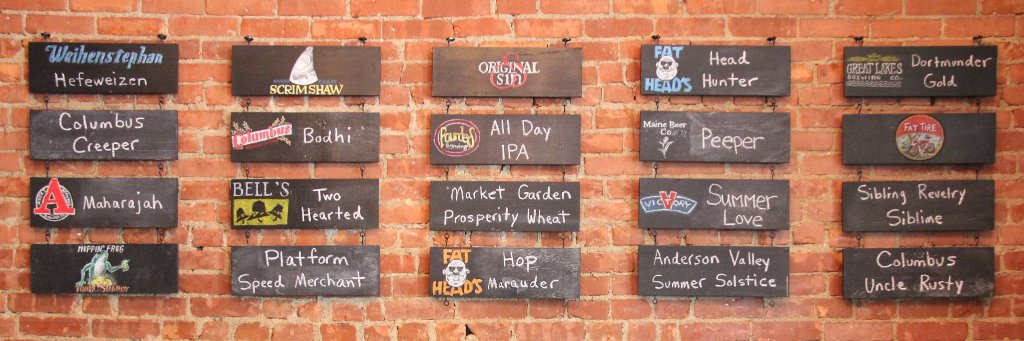 Weihenstephan
Hefeweizen
Columbus
Creeper
A
Maharajah
HOPPIN' FROG
SCRIMSHAW
Columbus
Bodhi
BELL'S
Two
Hearted
Platform
Speed Merchant
ORIGINAL
SIN
Founders
All Day
IPA
Market Garden
Prosperity Wheat
FAT
HEAD'S
Hop
Marauder
FAT
HEAD'S
Head
Hunter
Maine Beer
Co.
Peeper
VICTORY
Summer
Love
Anderson Valley
Summer Solstice
GREAT LAKES
BREWING CO.
Dortmunder
Gold
FAT TIRE
Sibling Revelry
Siblime
Columbus
Uncle Rusty